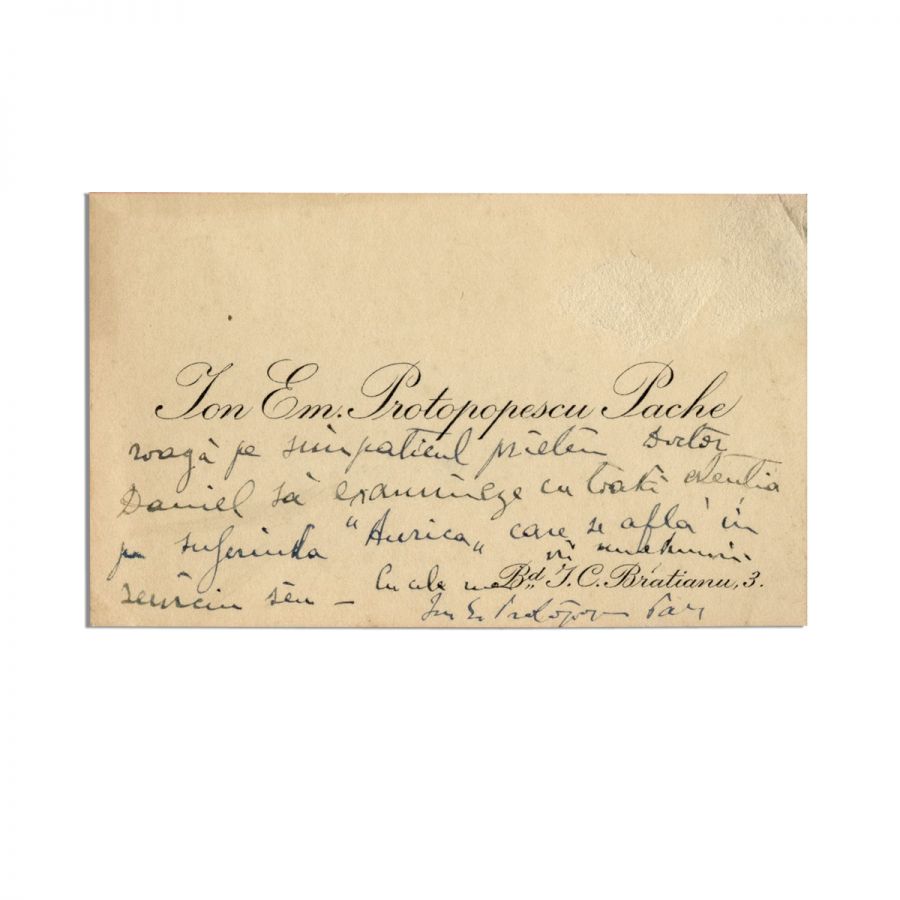 Ion Em. Protopopescu Pache
roagă pe simpaticul prieten Doctor
Daniel să examineze cu toată atenția
pe suferinda "Aurica„ care se află în
serviciu său – Cu cele
Bd. I.C. Bratianu, 3.
Ion E. Protopop